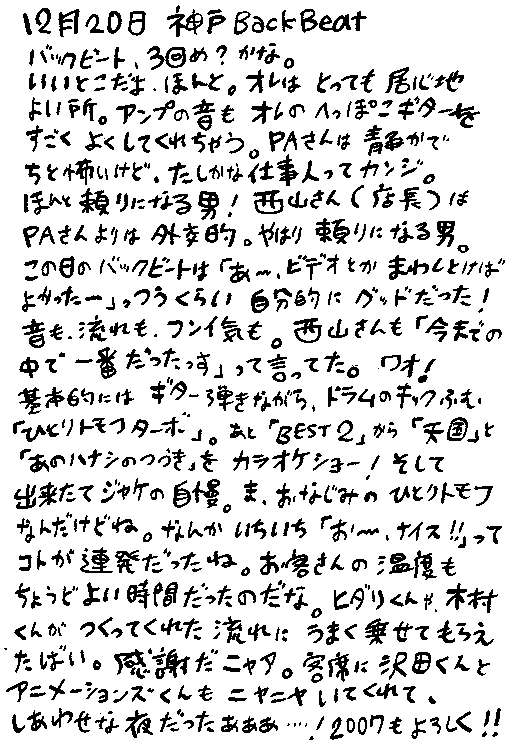 12月20日 神戸BackBeat
バックビート、3回め?かな。
いいとこだよ、ほんと。オレは とっても 居心地
よい所。アンプの音も オレの へっぽこギターを
すごく よくしてくれちゃう。PAさんは 静かで
ちと怖いけど、たしかな仕事人ってカンジ。
ほんと頼りになる男!西山さん(店長)は
PAさんよりは 外交的。やはり 頼りになる男。
この日のバックビートは「あ〜、ビデオとか まわしとけば
よかったー」っつうくらい 自分的に グッドだった!
音も、流れも、フンイ気も。西山さんも「今までの
中で 一番だったっす」って言ってた。ワオ!
基本的には ギター弾きながら、ドラムのキックふむ
「ひとりトモフターボ」。あと「BEST2」から「天国」と
「あのハナシのつづき」を カラオケショー!そして
出来たてジャケの自慢。ま、おなじみの ひとりトモフ
なんだけどね。なんか いちいち「お〜、ナイス!!」って
コトが 連発だったね。お客さんの 温度も
ちょうどよい時間だったのだな。ヒダリくんや、木村
くんが つくってくれた 流れに うまく乗せてもらえ
たばい。感謝だニャア。客席に 沢田くんと
アニメーションズくんも ニヤニヤいてくれて、
しあわせな夜だったあああ…!2007もよろしく!!